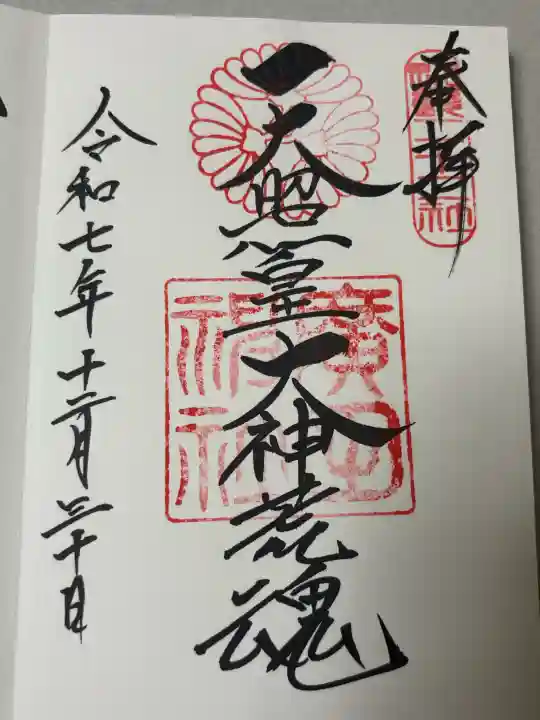 奉拝
天照皇大神荒魂
廣田神社
令和七年十二月三十日